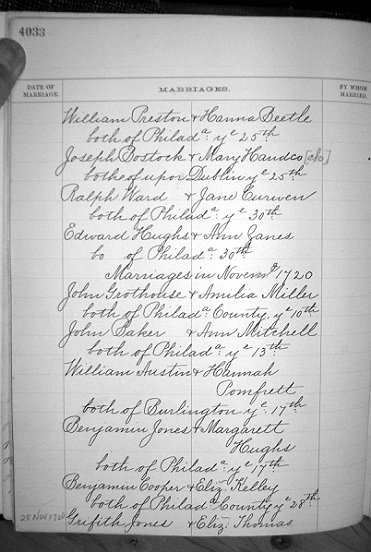 4033
DATE OF MARRIAGE.
MARRIAGES.
BY WHOM MARRIED.
William Preston & Hanna Beetle
both of Philada: ye 25th
Joseph Bostock & Mary Handco [clo]
bothe of upor Dublin ye 25th
Ralph Ward & Jane Curwen
both of Philada: ye 30th
Edward Hughs & Ann Zanes
bo of Philada: 30th
Marriages in Novembr 1720
John Grothouse & Amelia Miller
both of Philada: County, ye 10th
John Baker & Ann Mitchell
both of Philada: ye 13th
William Austin & Hannah
Pomfrett
both of Burlington ye 17th
Benjamin Jones & Margarett
Hughs
both of Philada: ye 17th
Benjamin Cooper & Eliz: Kelley
both of Philada County ye 28th
28 Nov 1720
Grifith Jones & Eliz: Thomas